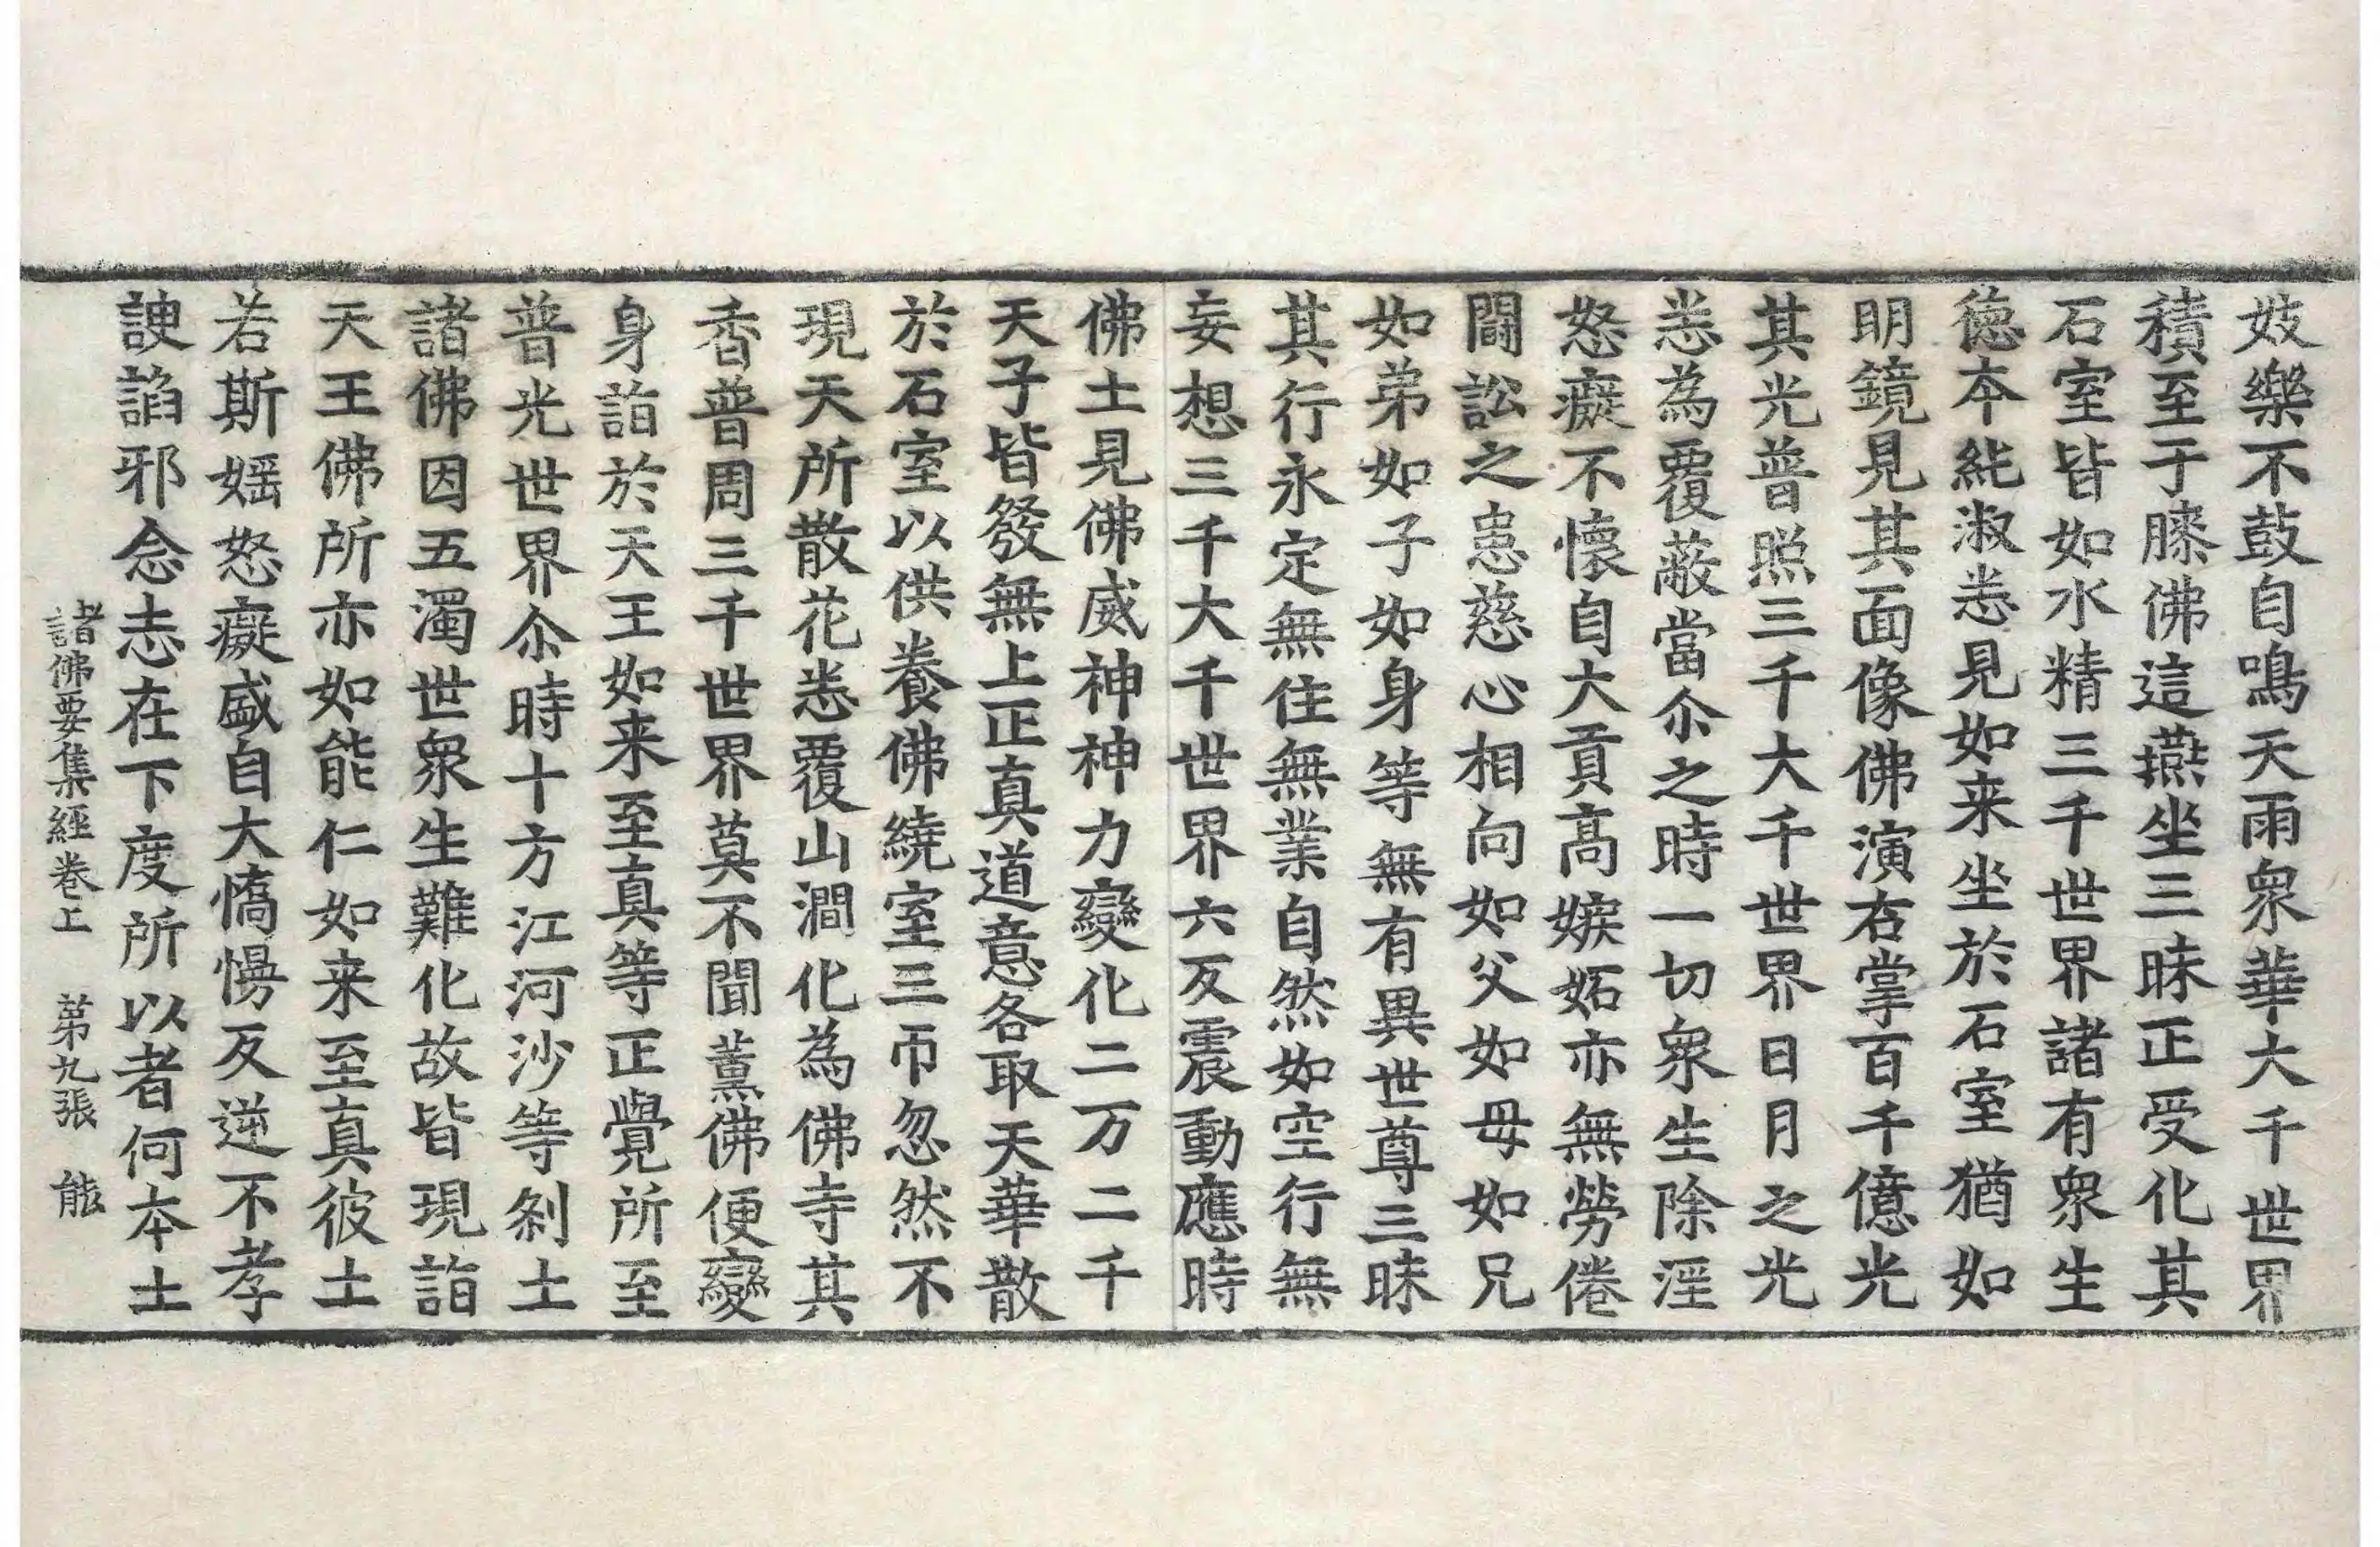 妓樂不鼓自鳴天雨衆華大千世界
積至于膝佛這燕坐三昧正受化其
石室皆如水精三千世界諸有衆生
徳本純淑悉見如来坐於石室猶如
明鏡見其面像佛演右掌百千億光
其光普照三千大千世界日月之光
悉為覆蔽當尒之時一切衆生除婬
怒癡不懷自大貢髙嫉妬亦無勞倦
鬪訟之患慈心相向如父如母如兄
如弟如子如身等無有異世尊三昧
其行永定無住無業自然如空行無
妄想三千大千世界六反震動應時
佛土見佛威神神力變化二万二千
天子皆發無上正真道意各取天華散
於石室以供養佛繞室三帀忽然不
現天所散花悉覆山澗化為佛寺其
香普周三千世界莫不聞薰佛便變
身詣於天王如来至真等正覺所至
普光世界尒時十方江河沙等刹土
諸佛因五濁世衆生難化故皆現詣
天王佛所亦如能仁如来至真彼土
若斯婬怒癡盛自大憍慢反逆不孝
諛諂邪念志在下度所以者何本土
諸佛要集經卷上　第九張　能